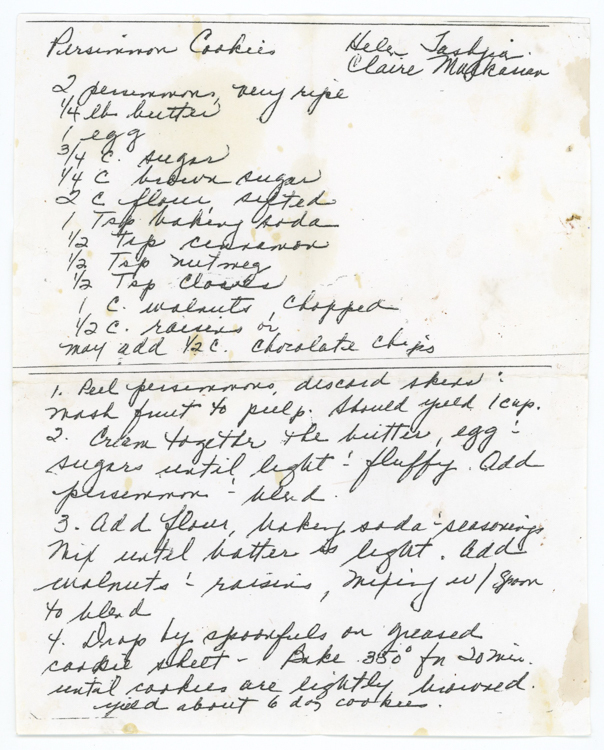 Persimmon Cookies
Helen Tashjia
Claire
2 persimmons, very ripe
1/4 lb butter
1 egg
3/4 C. sugar
1/4 C brown sugar
2 C flour, sifted
1 Tsp baking soda
1/2 Tsp cinnamon
1/2 Tsp nutmeg
1/2 Tsp Cloves
1 C. walnuts, chopped
1/2 C. raisins or
may add 1/2 C. Chocolate Chips
1. Peel persimmons, discard skins &
mash fruit to pulp. Should yield 1 cup.
2. Cream together the butter, egg &
sugars until light & fluffy. Add
persimmon & blend.
3. Add flour, baking soda & seasonings
Mix until batter is light. Add
walnuts & raisins, mixing w/ spoon
to blend
4. Drop by spoonfuls on greased
cookie sheet - Bake 350° fn 20 min.
until cookies are lightly browned.
yield about 6 doz cookies.